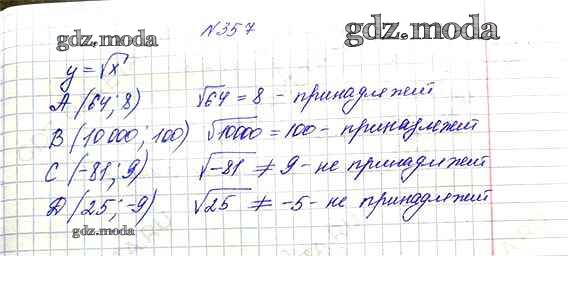 N357
gdz.moda
gdz.moda
y = √x
A (64; 8) √64 = 8 - принадлежит
B (10 000; 100) √10000 = 100 - принадлежит
C (-81; 9) √-81 ≠ 9 - не принадлежит
D (25; -9) √25 ≠ -5 - не принадлежит
gdz.moda